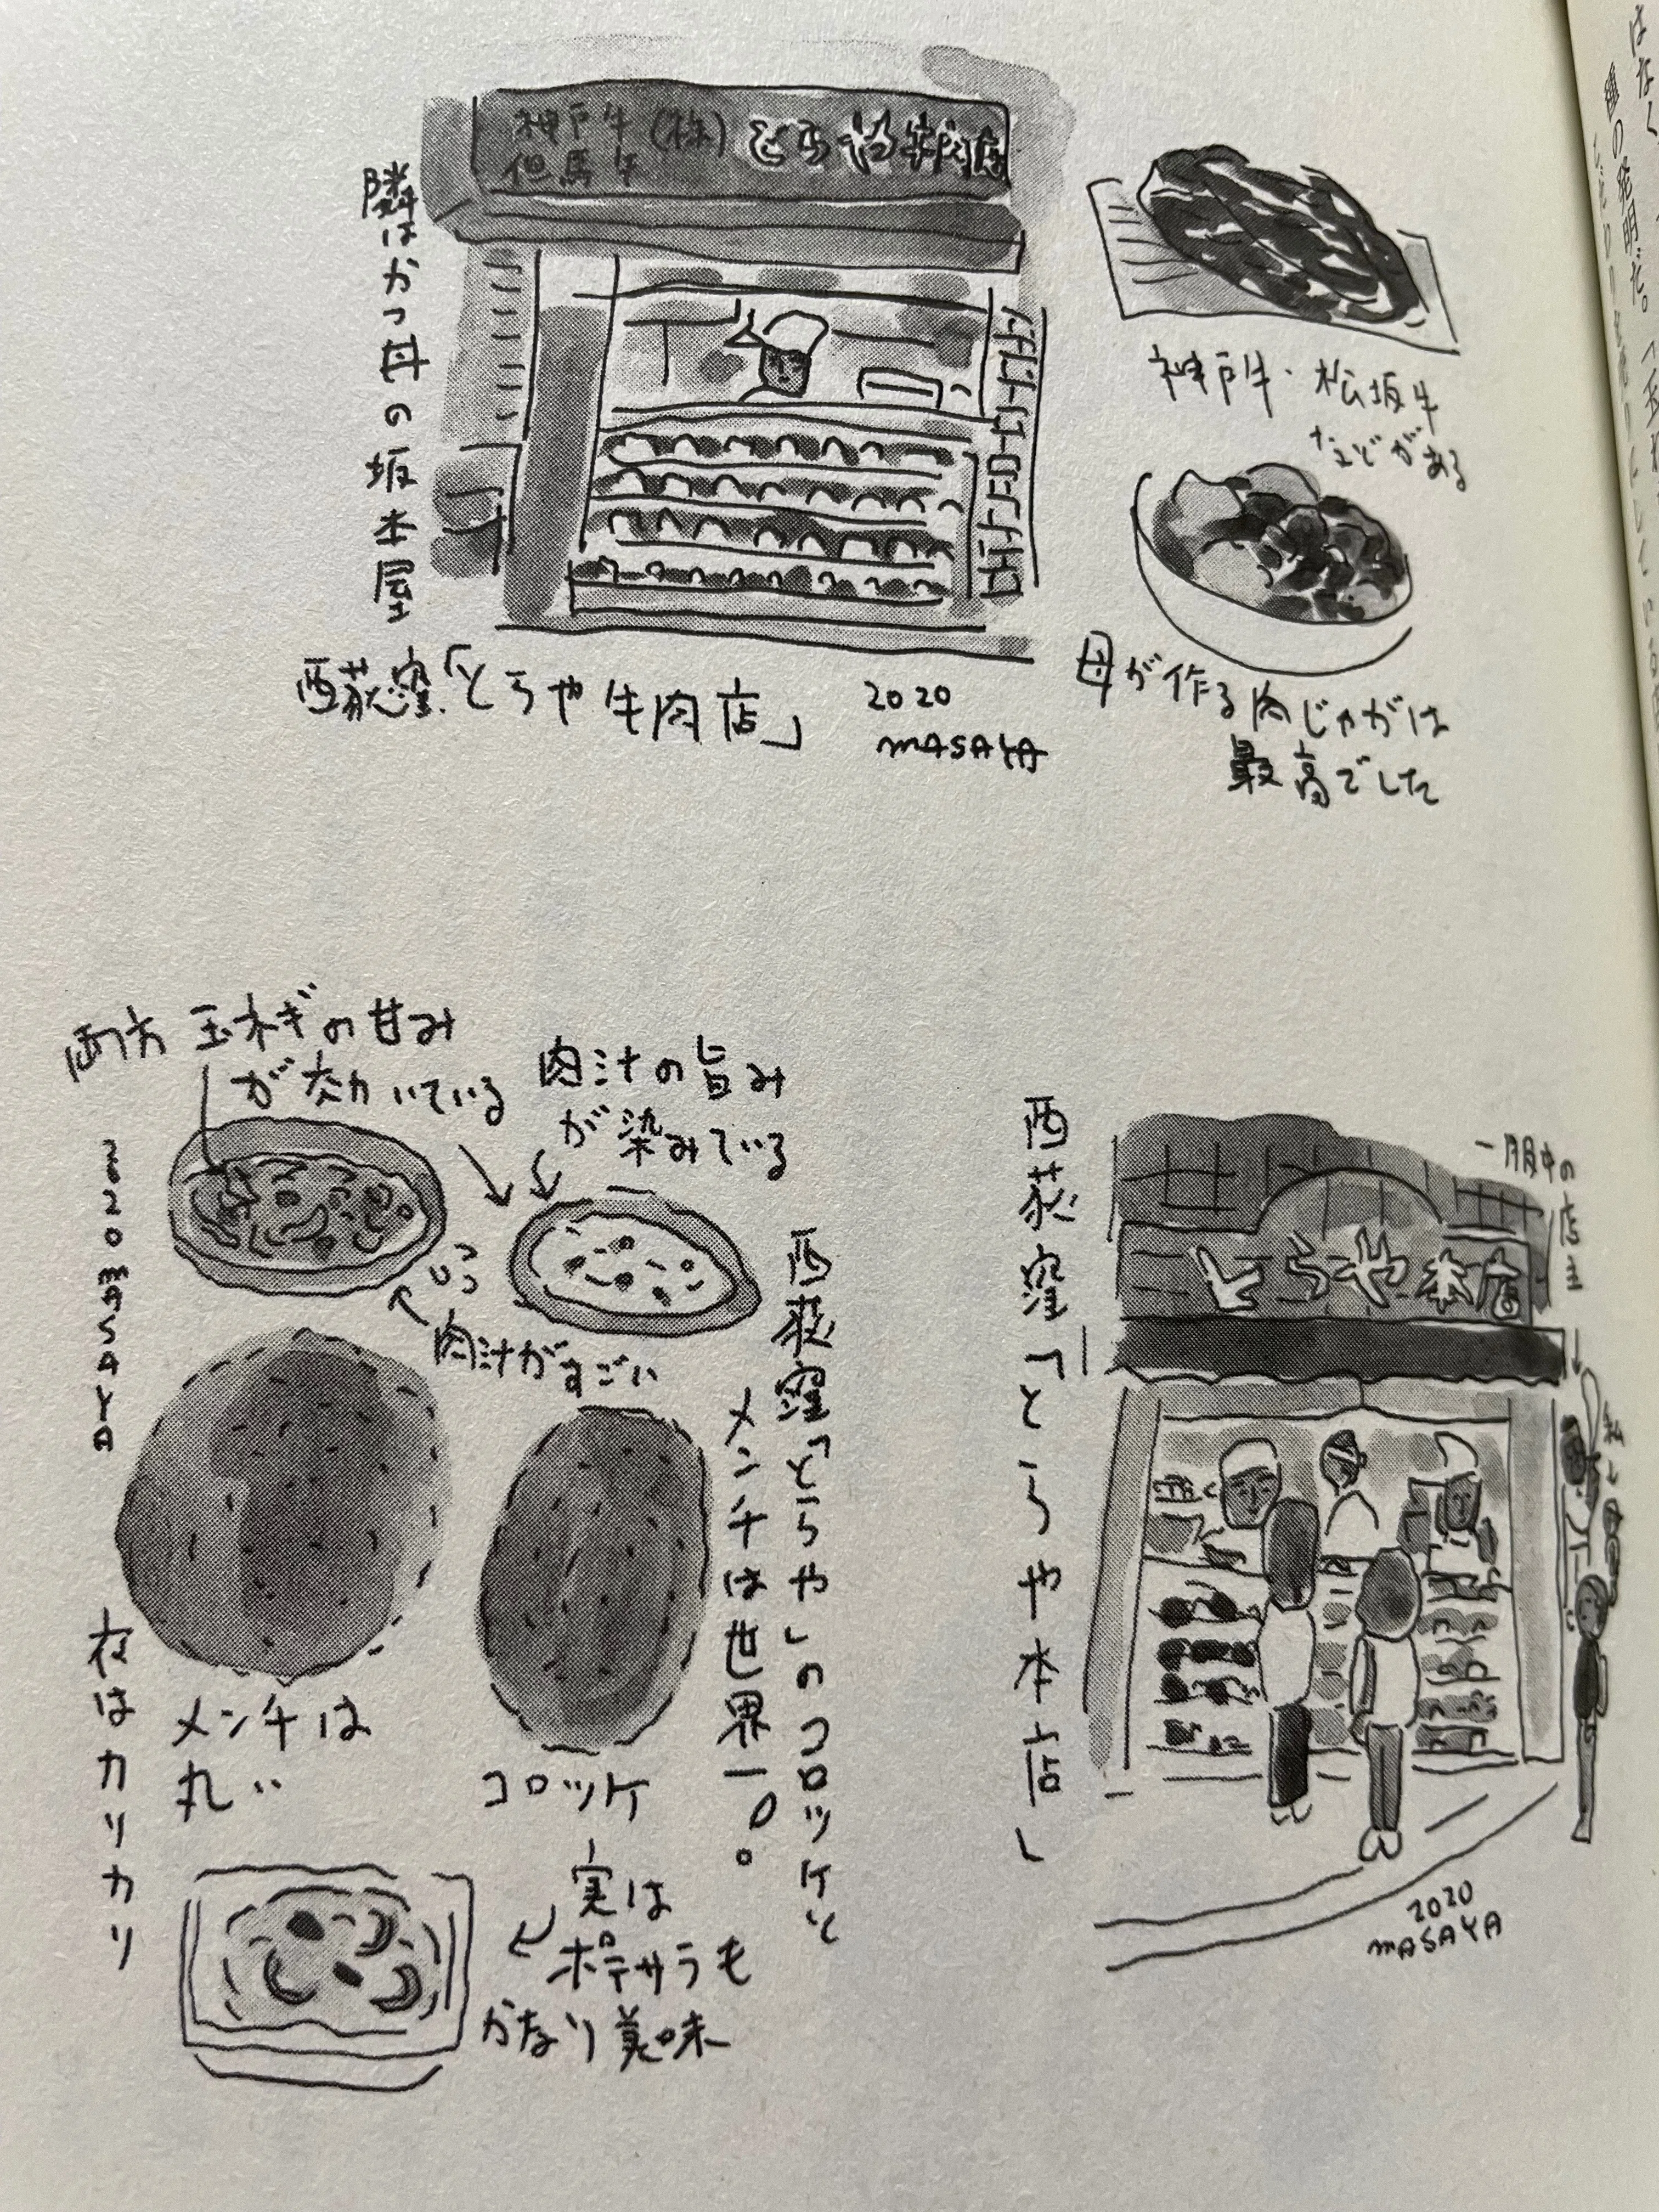 神戸牛
但馬牛
(株)
とらや牛肉店
隣はかつ丼の坂本屋
西荻窪「とらや牛肉店」
2020
MASAYA
神戸牛・松坂牛
などがある
母が作る肉じゃがは
最高でした
両方玉ネギの甘み
が効いている
肉汁の旨み
が染みている
肉汁がすごい
2020 MASAYA
西荻窪「とらや」のコロッケと
メンチは世界一。
メンチは
丸い
コロッケ
衣はカリカリ
実は
ポテサラも
かなり美味
西荻窪「とらや本店」
とらや本店
一服中の店主
私
2020
MASAYA
はなく
の発明だ。